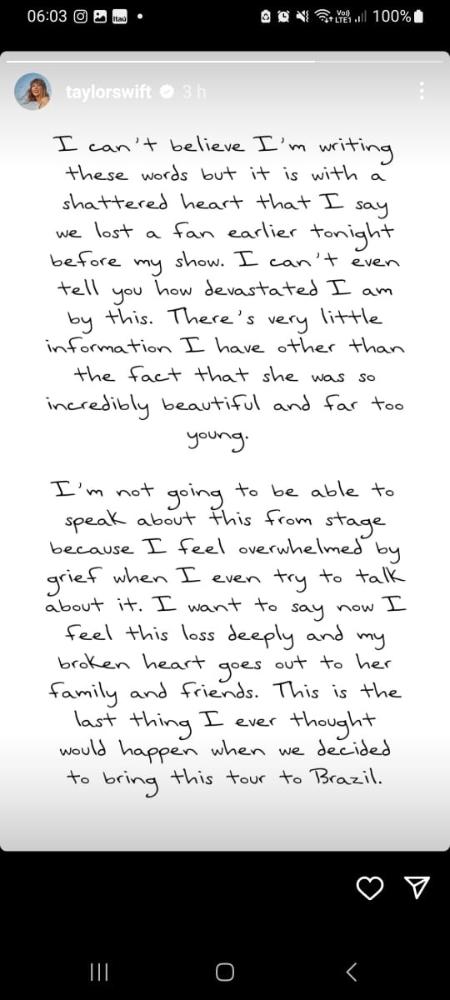 06:03 Itaú Vo)) LTE1 100%
taylorswift 3 h
I can't believe I'm writing
these words but it is with a
shattered heart that I say
we lost a fan earlier tonight
before my show. I can't even
tell you how devastated I am
by this. There's very little
information I have other than
the fact that she was so
incredibly beautiful and far too
young.
I'm not going to be able to
speak about this from stage
because I feel overwhelmed by
grief when I even try to talk
about it. I want to say now I
feel this loss deeply and my
broken heart goes out to her
family and friends. This is the
last thing I ever thought
would happen when we decided
to bring this tour to Brazil.